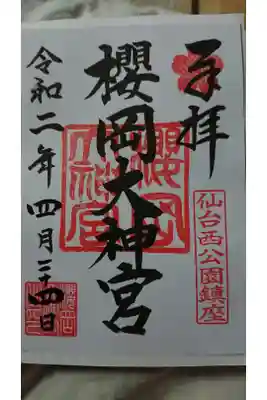 奉拝
仙台西公園鎮座
櫻岡大神宮
櫻岡大神宮
令和二年四月二十四日